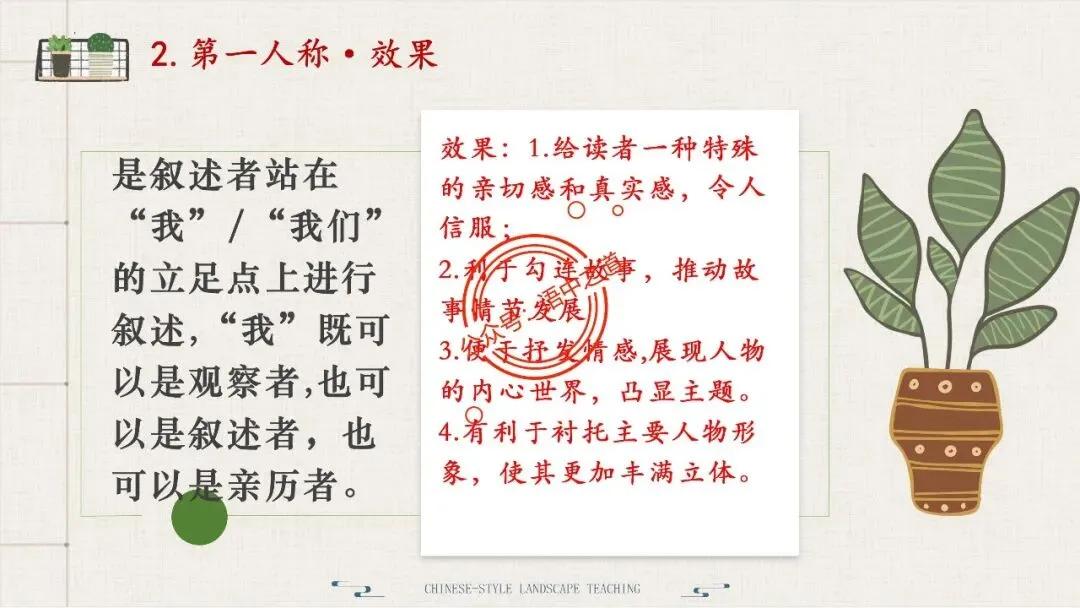 2.第一人称·效果
是叙述者站在
“我”/“我们”
的立足点上进行
叙述,“我”既可
以是观察者,也可
以是叙述者，也
可以是亲历者。
效果：1.给读者一种特殊
的亲切感和真实感，令人
信服；
2.利于勾连故事，推动故
事情节发展
3.便于抒发情感,展现人物
的内心世界，凸显主题。
4.有利于衬托主要人物形
象，使其更加丰满立体。
公众号·语中之道
CHINESE-STYLE LANDSCAPE TEACHING